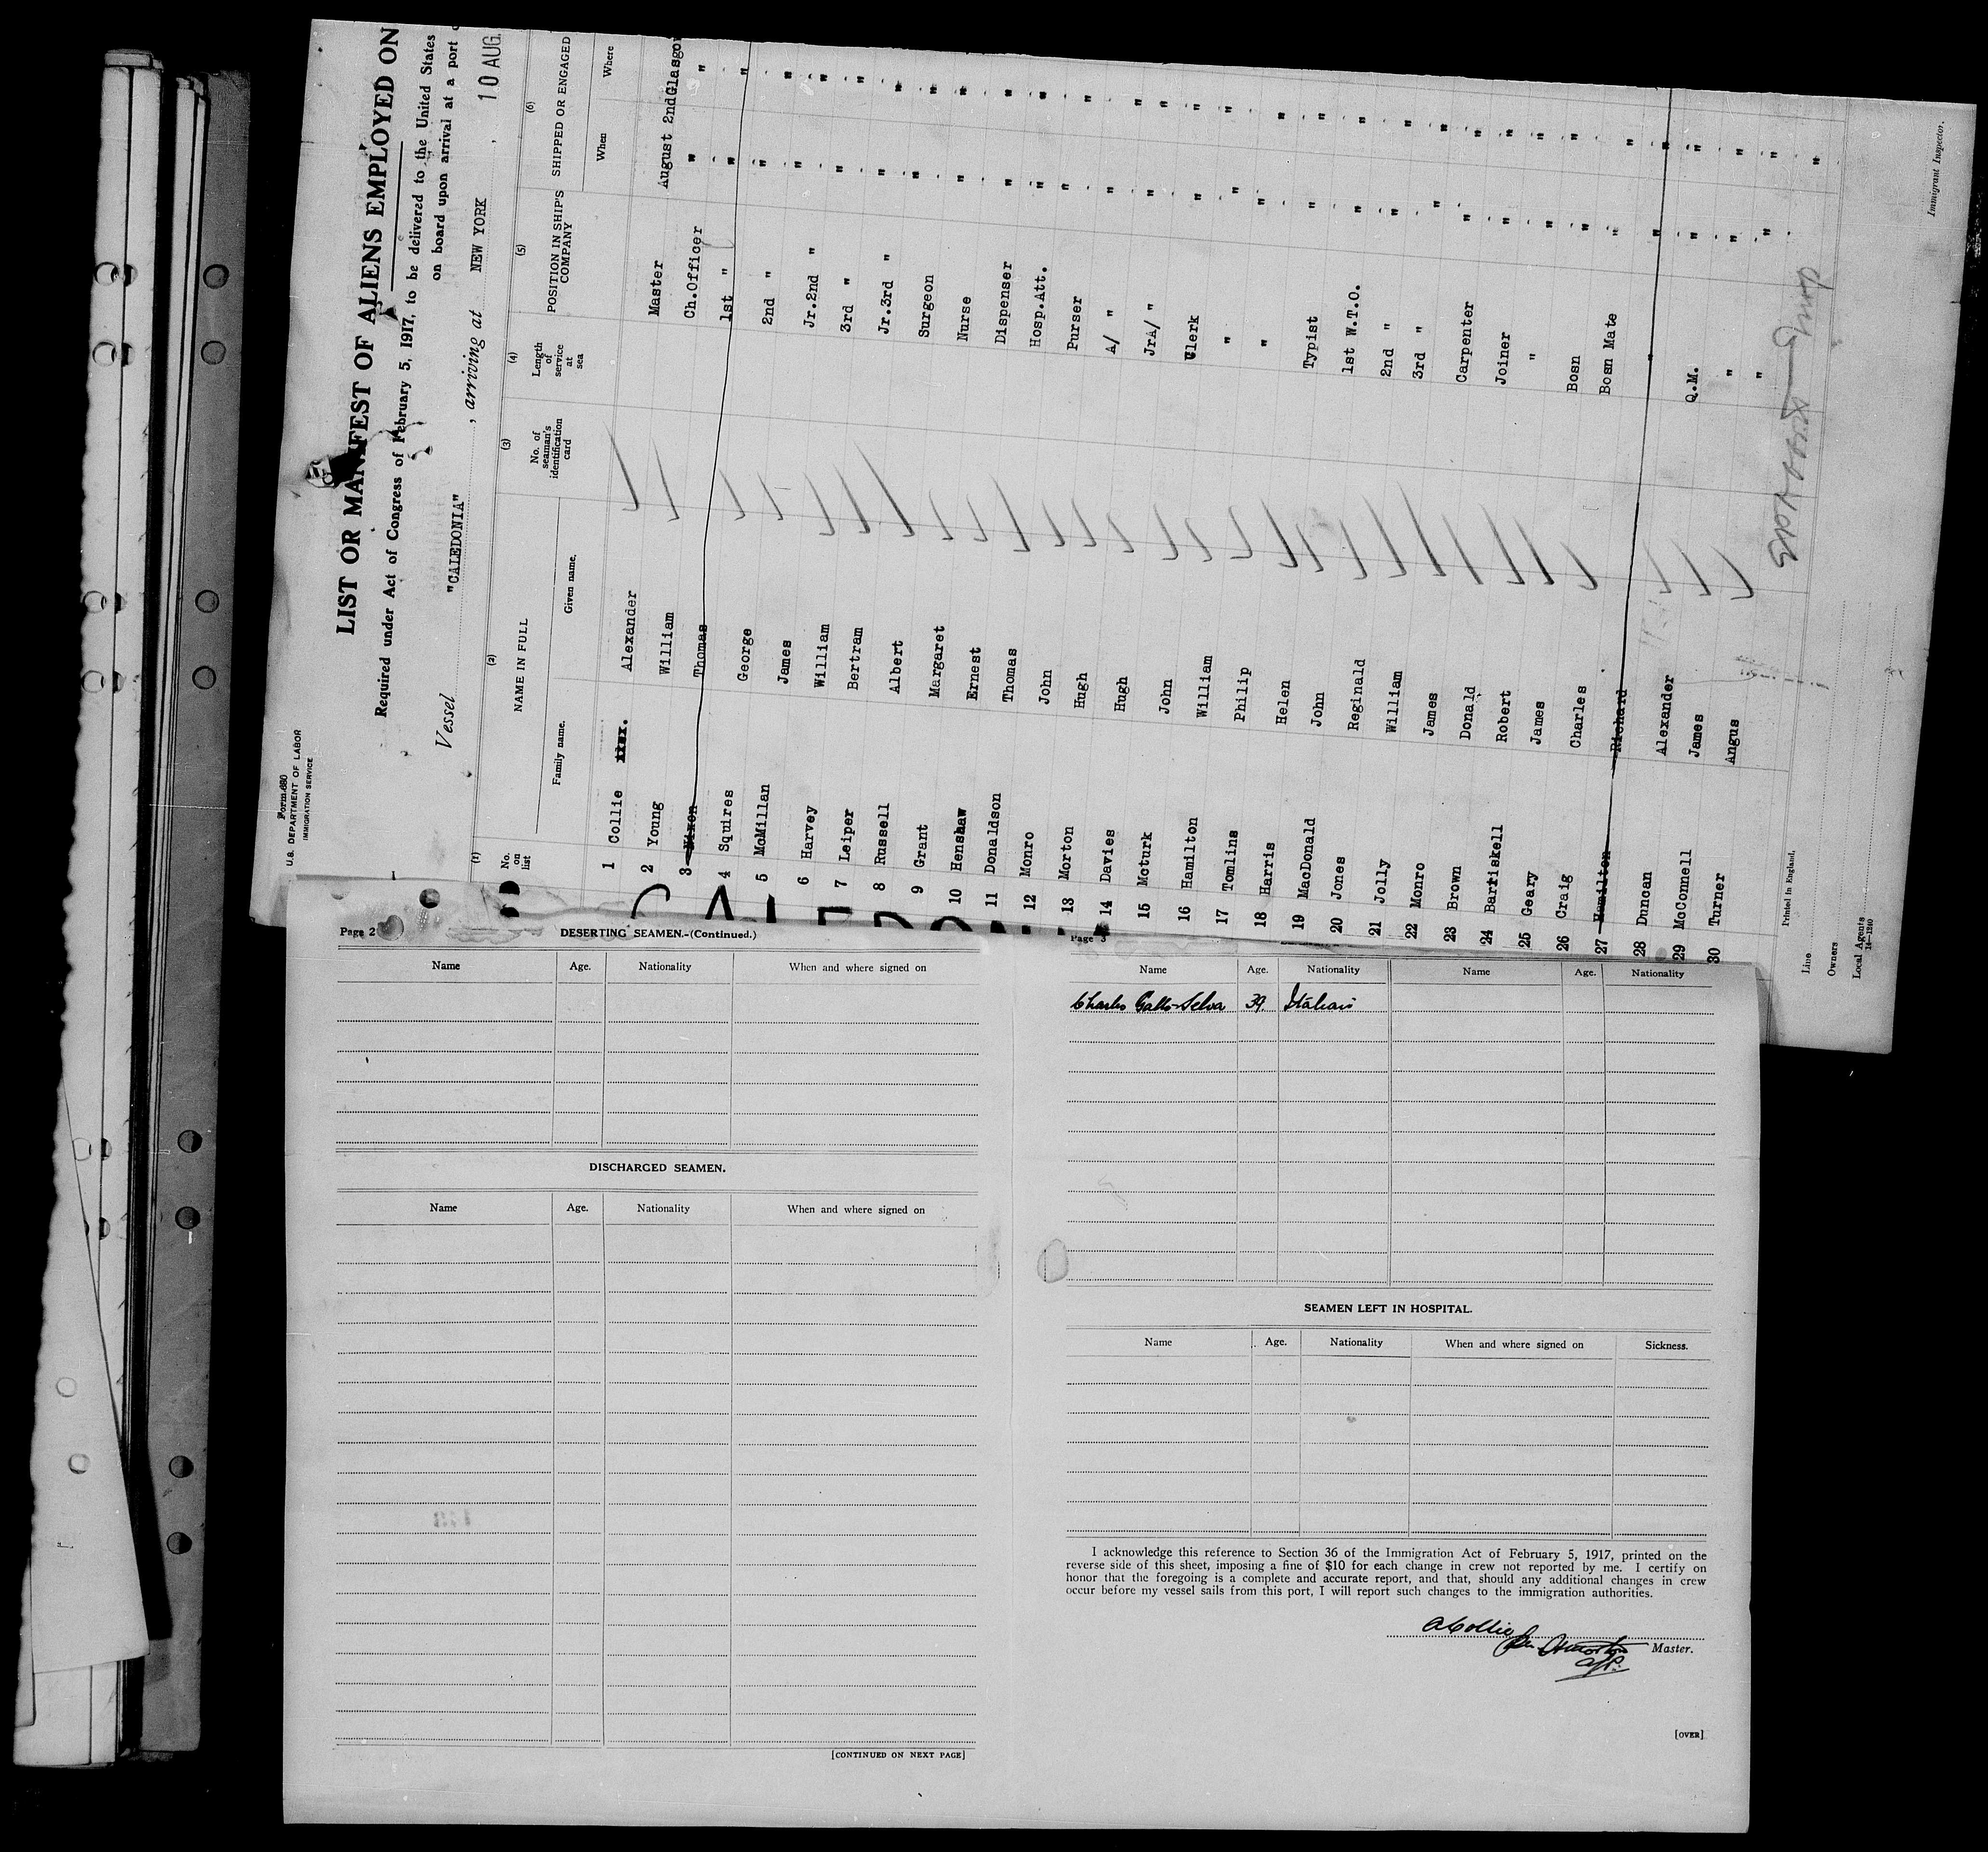 Form 680
U.S. DEPARTMENT OF LABOR
IMMIGRATION SERVICE
LIST OR MANIFEST OF ALIENS EMPLOYED ON
Required under Act of Congress of February 5, 1917, to be delivered to the United States
on board upon arrival at a port
Vessel "CALEDONIA" , arriving at NEW YORK , 10 AUG.
(1) (2) (3) (4) (5) (6)
No. on list NAME IN FULL No. of seaman's identification card Length of service at sea POSITION IN SHIP'S COMPANY SHIPPED OR ENGAGED
Family name. Given name. When Where
1 Collie Alexander Master August 2nd Glasgow
2 Young William Ch.Officer " "
3 Nixon Thomas 1st " " "
4 Squires George 2nd " " "
5 McMillan James Jr.2nd " " "
6 Harvey William 3rd " " "
7 Leiper Bertram Jr.3rd " " "
8 Russell Albert Surgeon " "
9 Grant Margaret Nurse " "
10 Henshaw Ernest Dispenser " "
11 Donaldson Thomas Hosp.Att. " "
12 Monro John Purser " "
13 Morton Hugh A/ " " "
14 Davies Hugh JrA/ " " "
15 Mcturk John Clerk " "
16 Hamilton William " " "
17 Tomlins Philip " " "
18 Harris Helen Typist " "
19 MacDonald John 1st W.T.O. " "
20 Jones Reginald 2nd " " "
21 Jolly William 3rd " " "
22 Monro James Carpenter " "
23 Brown Donald Joiner " "
24 Barriskell Robert " " "
25 Geary James Bosn " "
26 Craig Charles Bosn Mate " "
27 Hamilton Richard " " "
28 Duncan Alexander Q.M. " "
29 McConnell James " " "
30 Turner Angus " " "
Line
Owners
Local Agents
14-1240
Printed in England.
Immigrant Inspector.
CALEDONIA
Page 2 DESERTING SEAMEN.-(Continued.)
Name Age. Nationality When and where signed on
DISCHARGED SEAMEN.
Name Age. Nationality When and where signed on
[CONTINUED ON NEXT PAGE]
Page 3
Name Age. Nationality Name Age. Nationality
Charles Gallo-Selva 39. Italian
SEAMEN LEFT IN HOSPITAL.
Name Age. Nationality When and where signed on Sickness.
I acknowledge this reference to Section 36 of the Immigration Act of February 5, 1917, printed on the
reverse side of this sheet, imposing a fine of $10 for each change in crew not reported by me. I certify on
honor that the foregoing is a complete and accurate report, and that, should any additional changes in crew
occur before my vessel sails from this port, I will report such changes to the immigration authorities.
A Collie
Master.
[OVER]